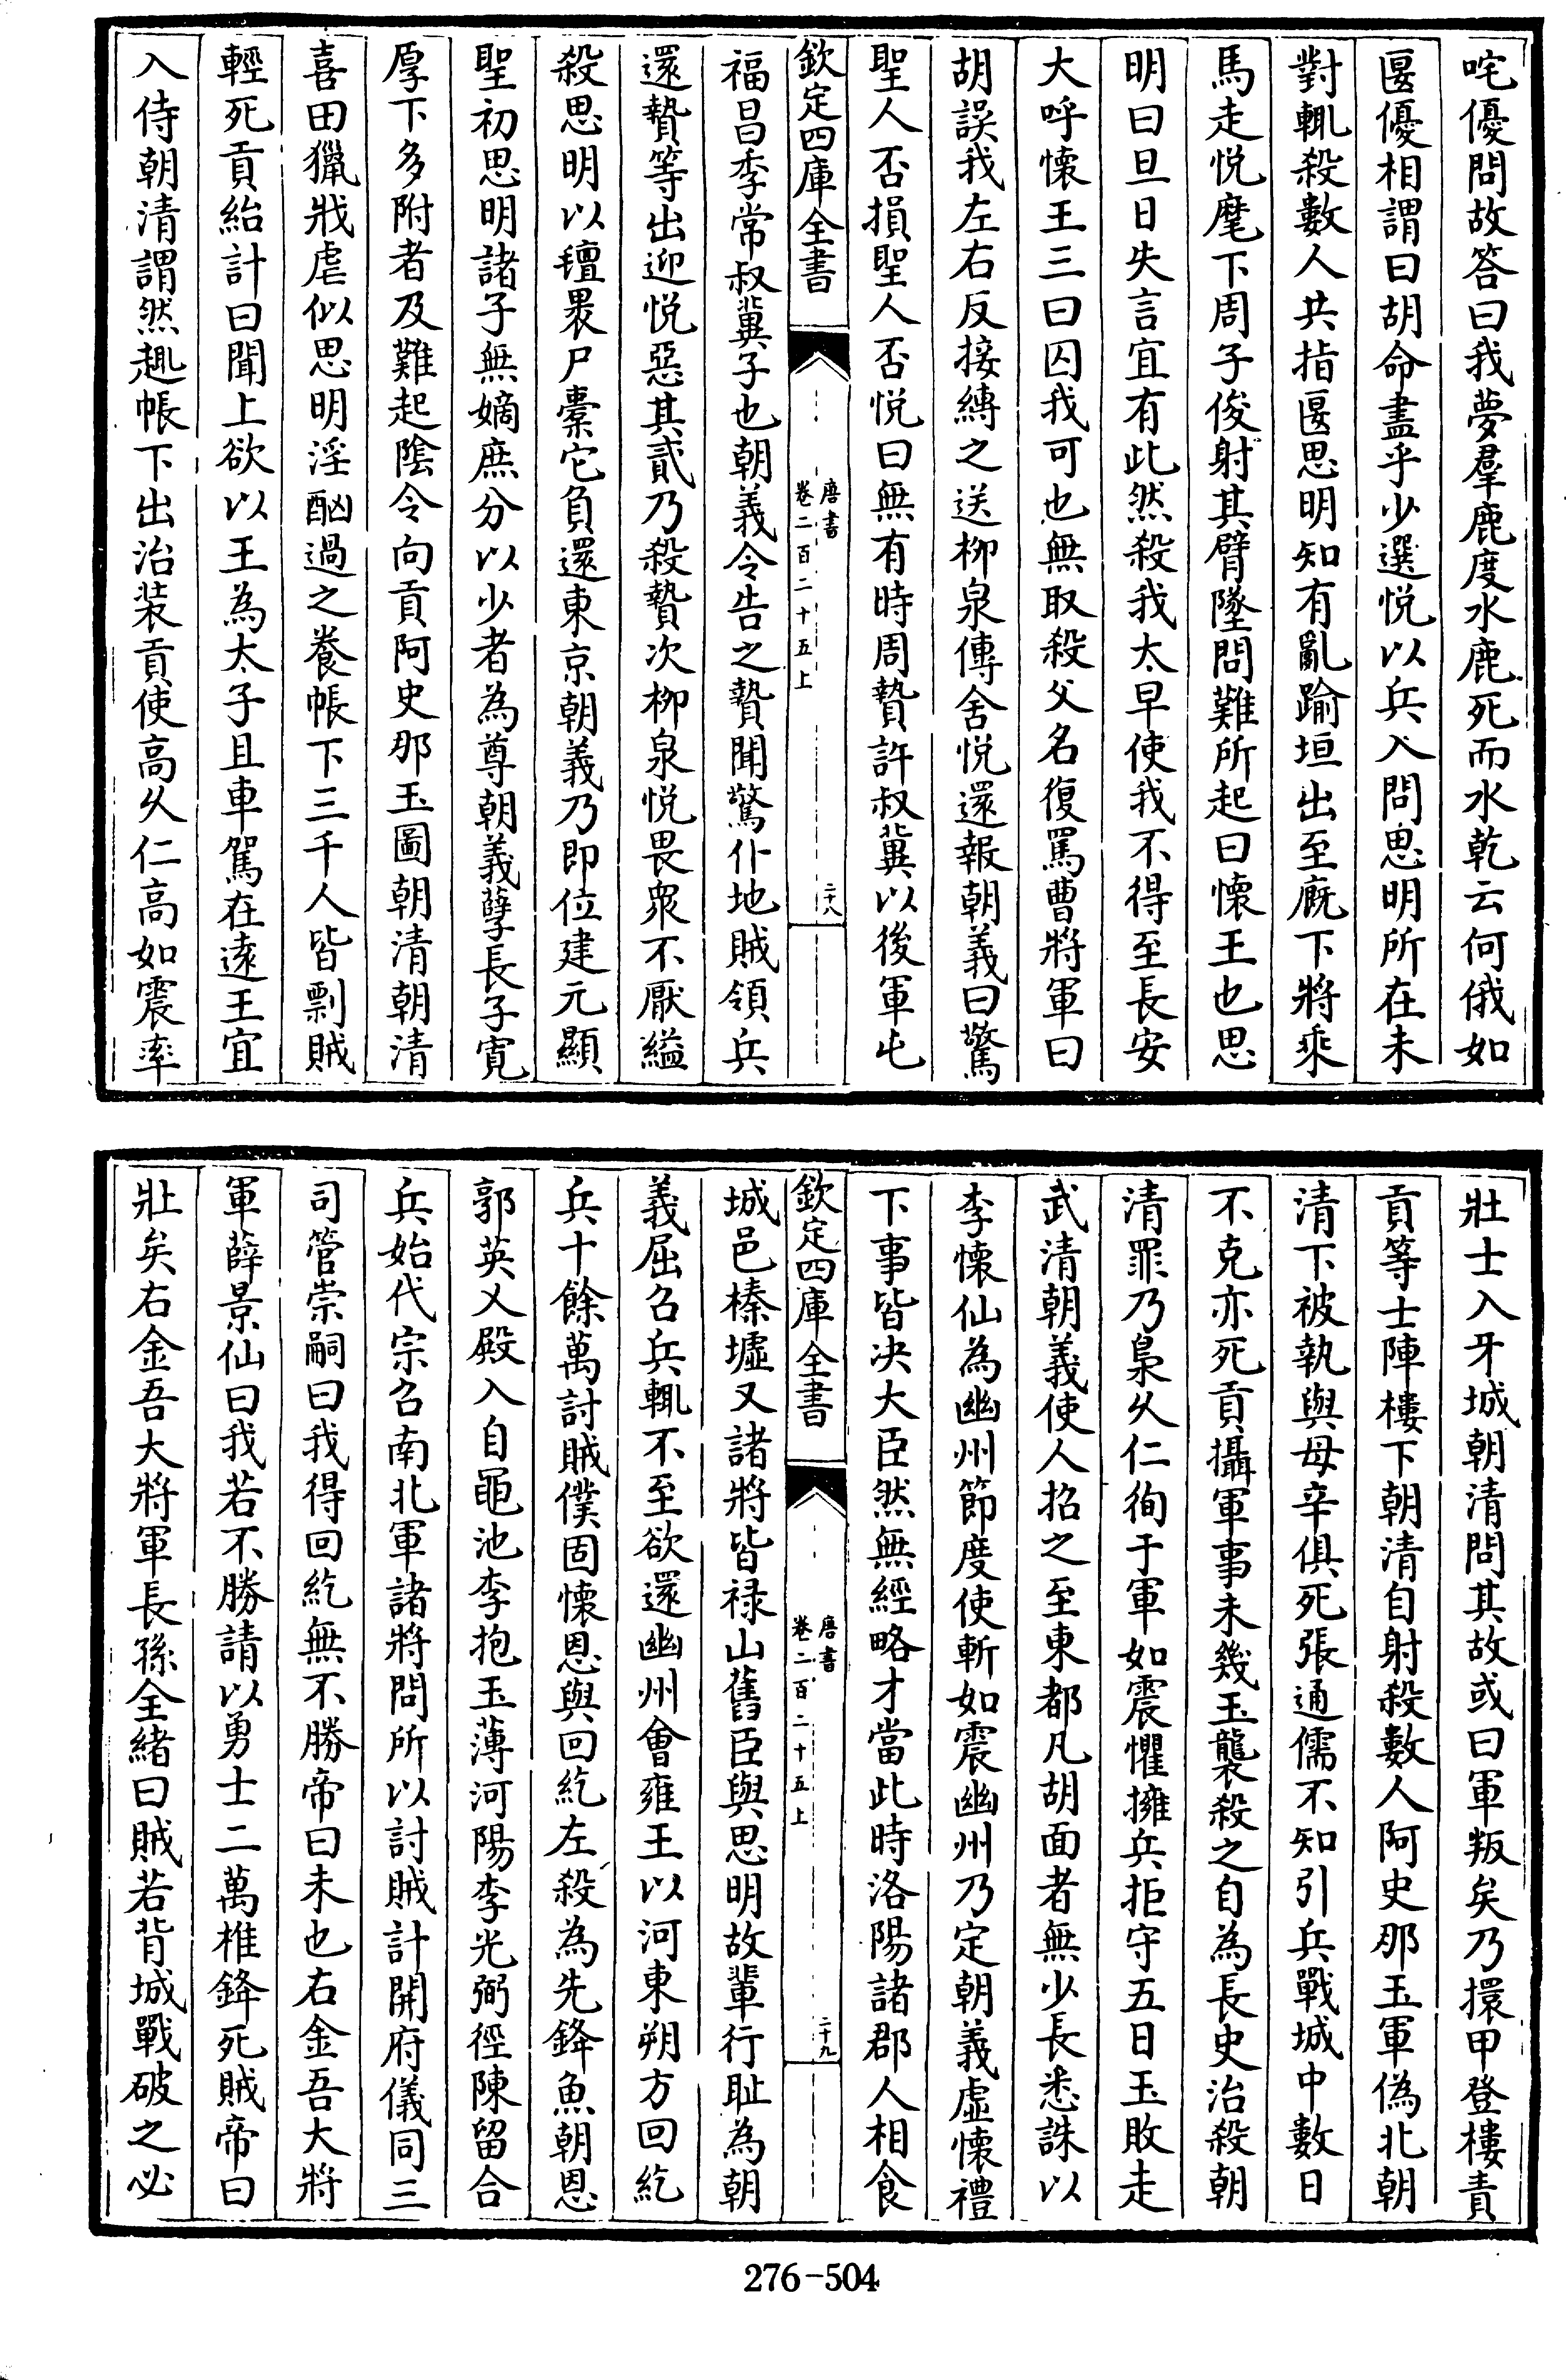 咤優問故答曰我夢羣鹿度水鹿死而水乾云何俄如
匽優相謂曰胡命盡乎少選悦以兵入問思明所在未
對輒殺數人共指匽思明知有亂踰垣出至廐下將乘
馬走悦麾下周子俊射其臂墜問難所起曰懷王也思
明曰旦日失言宜有此然殺我太早使我不得至長安
大呼懷王三曰囚我可也無取殺父名復罵曹將軍曰
胡誤我左右反接縛之送柳泉傳舍悦還報朝義曰驚
聖人否損聖人否悦曰無有時周贄許叔冀以後軍屯
欽定四庫全書
唐書
卷二百二十五上
二十八
福昌季常叔冀子也朝義令告之贄聞驚仆地賊領兵
還贄等出迎悦惡其貳乃殺贄次柳泉悦畏衆不厭縊
殺思明以氊褁尸橐它負還東京朝義乃即位建元顯
聖初思明諸子無嫡庶分以少者為尊朝義孽長子寛
厚下多附者及難起陰令向貢阿史那玉圖朝清朝清
喜田獵戕虐似思明淫酗過之養帳下三千人皆剽賊
輕死貢紿計曰聞上欲以王為太子且車駕在逺王宜
入侍朝清謂然趣帳下出治装貢使高久仁高如震率
壯士入牙城朝清問其故或曰軍叛矣乃擐甲登樓責
貢等士陣樓下朝清自射殺數人阿史那玉軍偽北朝
清下被執與母辛俱死張通儒不知引兵戰城中數日
不克亦死貢攝軍事未幾玉襲殺之自為長史治殺朝
清罪乃梟久仁徇于軍如震懼擁兵拒守五日玉敗走
武清朝義使人招之至東都凡胡面者無少長悉誅以
李懷仙為幽州節度使斬如震幽州乃定朝義虛懷禮
下事皆决大臣然無經略才當此時洛陽諸郡人相食
欽定四庫全書
唐書
卷二百二十五上
二十九
城邑榛墟又諸將皆禄山舊臣與思明故輩行耻為朝
義屈召兵輒不至欲還幽州會雍王以河東朔方回紇
兵十餘萬討賊僕固懷恩與回紇左殺為先鋒魚朝恩
郭英乂殿入自黽池李抱玉薄河陽李光弼徑陳留合
兵始代宗召南北軍諸將問所以討賊計開府儀同三
司管崇嗣曰我得回紇無不勝帝曰未也右金吾大將
軍薛景仙曰我若不勝請以勇士二萬椎鋒死賊帝曰
壯矣右金吾大將軍長孫全緒曰賊若背城戰破之必
276-504